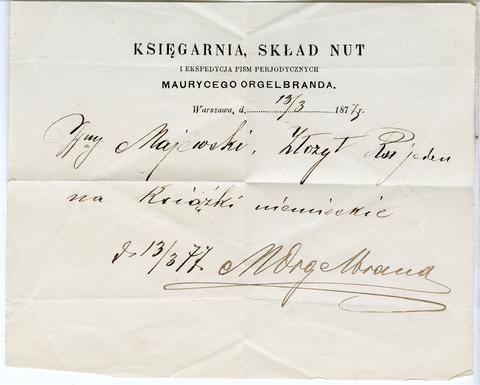 KSIĘGARNIA, SKŁAD NUT
I EKSPEDYCJA PISM PERJODYCZNYCH
MAURYCEGO ORGELBRANDA.
Warszawa, d. 13/3 1877.
Majewski, Złożył Rs jeden
na Książki niemieckie
d. 13/3 77. MOrgelbrand